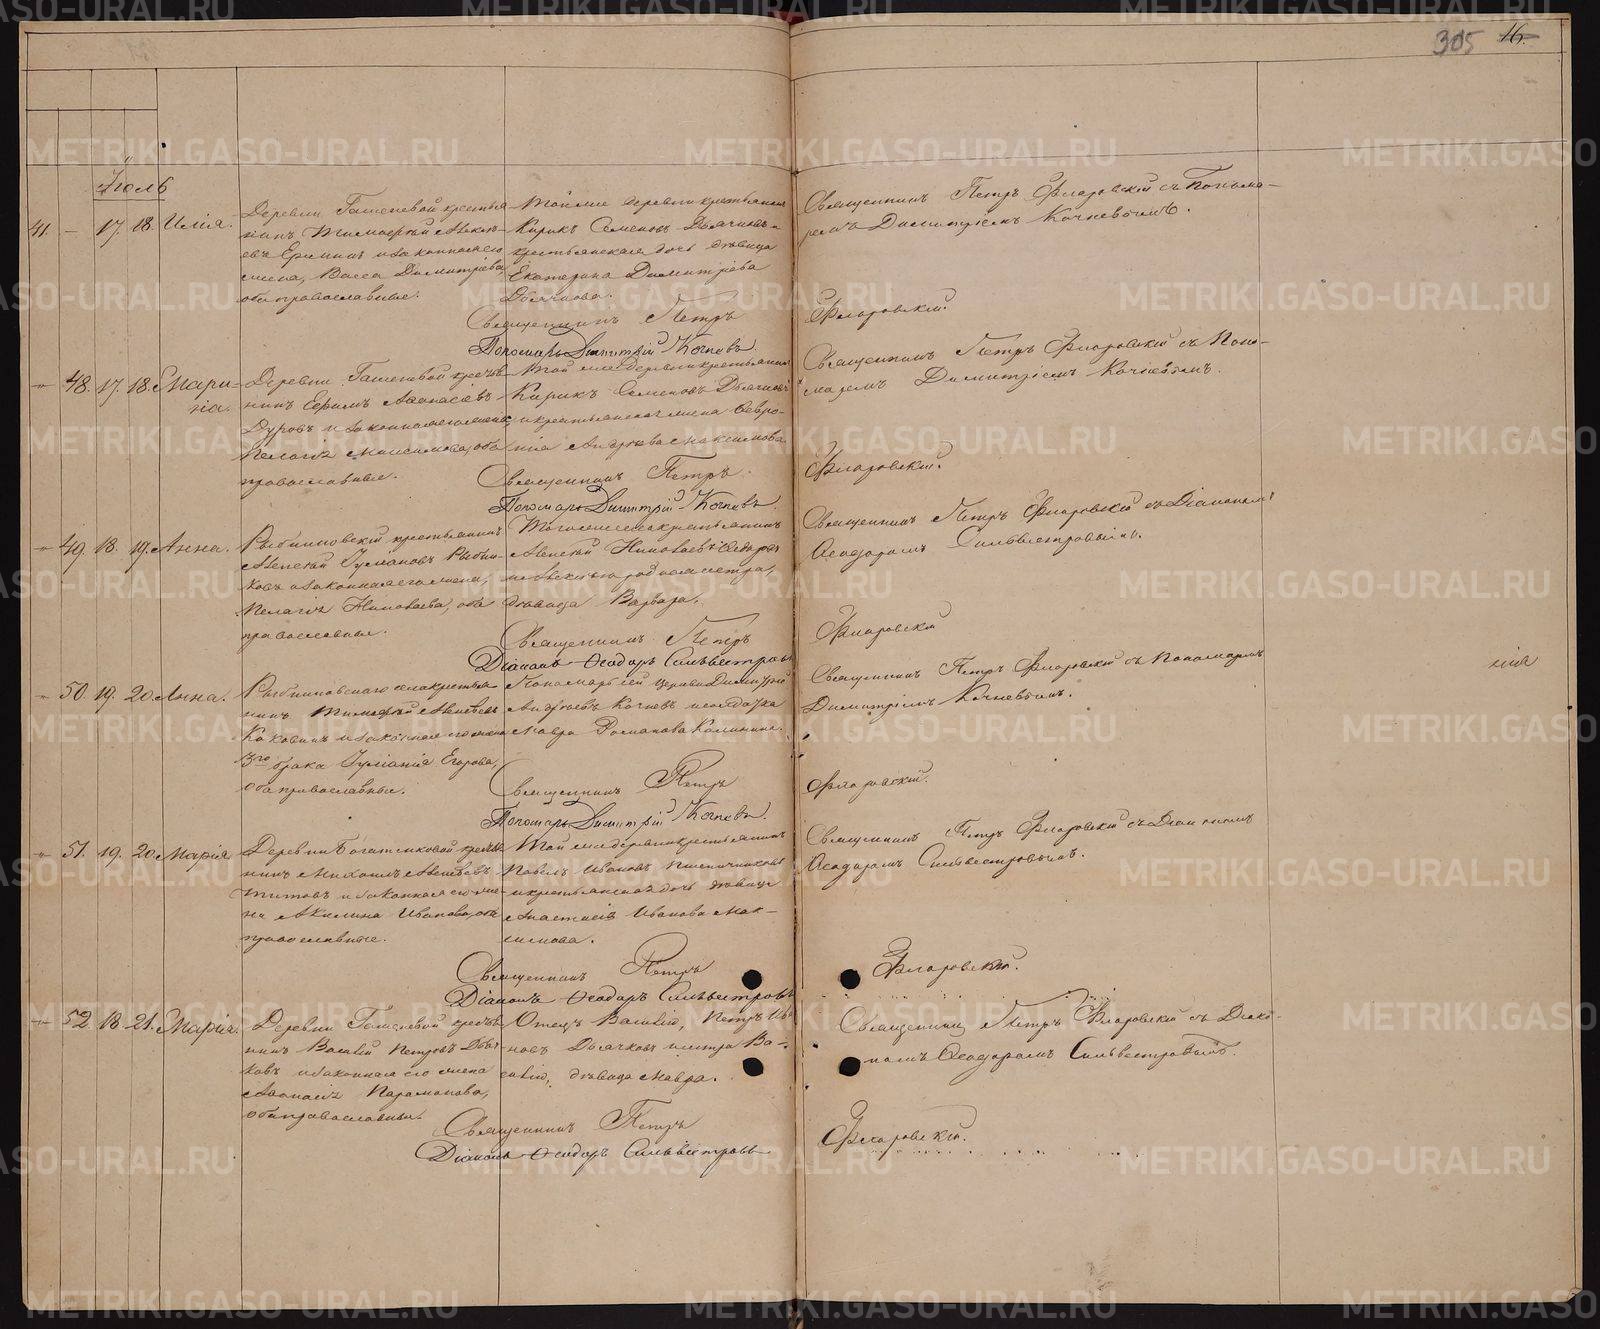 305 16.
Июль
41. — 17. 18. Илія.
Деревни Гашеневой крестья-
нинъ Тимоѳей
Ереминъ и законная его
жена, Васса Димитріева,
оба православные.
Тойже деревни крестьянинъ
Кирикъ Семеновъ Дьячковъ и
крестьянская дочь дѣвица
Екатерина Димитріева
Дьячкова.
Священникъ Петръ Флоровскій съ Понома-
ремъ Димитріемъ Кочневымъ.
Священникъ Петръ Флоровскій.
Пономарь Димитрій Кочневъ.
48. 17. 18. Мари-
на.
Деревни Гашеневой крестья-
нинъ Ефимъ Аѳанасіевъ
Дуровъ и законная его жена
Пелагія Максимова, оба
православные.
Той же деревни крестьянинъ
Кирикъ Семеновъ Дьячковъ
и крестьянская жена Февро-
нія Андреева Максимова
Священникъ Петръ Флоровскій съ Поно-
маремъ Димитріемъ Кочневымъ.
Священникъ Петръ Флоровскій.
Пономарь Димитрій Кочневъ.
49. 18. 19. Анна.
крестьянинъ
Алексѣй
и законная его жена,
Пелагія оба
православные.
Тогоже села крестьянинъ
Алексѣй
родная сестра,
дѣвица Варвара.
Священникъ Петръ Флоровскій съ Діакономъ
Ѳеодоромъ Сильвестровымъ.
Священникъ Петръ Флоровскій
Діаконъ Ѳеодоръ Сильвестровъ
50. 19. 20. Анна.
села крестья-
нинъ Тимоѳей Алексѣевъ
Каковинъ и законная его жена
3го брака Егорова,
оба православные.
Пономарь сей церкви Димитрій
Андреевъ Кочневъ и солдатка
Мавра Романова Калинина.
Священникъ Петръ Флоровскій съ Пономаремъ
Димитріемъ Кочневымъ.
Священникъ Петръ Флоровскій.
Пономарь Димитрій Кочневъ.
51. 19. 20. Марія
Деревни Богатенковой крестья-
нинъ Михаилъ Алексѣевъ
Титовъ и законная его же-
на Акилина Иванова, оба
православные.
Той же деревни крестьянинъ
Павелъ Ивановъ Пшеничниковъ
и крестьянская дочь дѣвица
Анастасія Иванова Мак-
симова.
Священникъ Петръ Флоровскій съ Діакономъ
Ѳеодоромъ Сильвестровымъ.
Священникъ Петръ Флоровскій.
Діаконъ Ѳеодоръ Сильвестровъ
52. 18. 21. Марія.
Деревни Гашеневой крестья-
нинъ Василій Петровъ Дьяч-
ковъ и законная его жена
Аѳанасія Парамонова,
оба православные.
Отецъ Василію, Петръ Ива-
новъ Дьячковъ и сестра Ва-
силію, дѣвица Мавра.
Священникъ Петръ Флоровскій съ Діако-
номъ Ѳеодоромъ Сильвестровымъ.
Священникъ Петръ Флоровскій.
Діаконъ Ѳеодоръ Сильвестровъ
METRIKI.GASO-URAL.RU